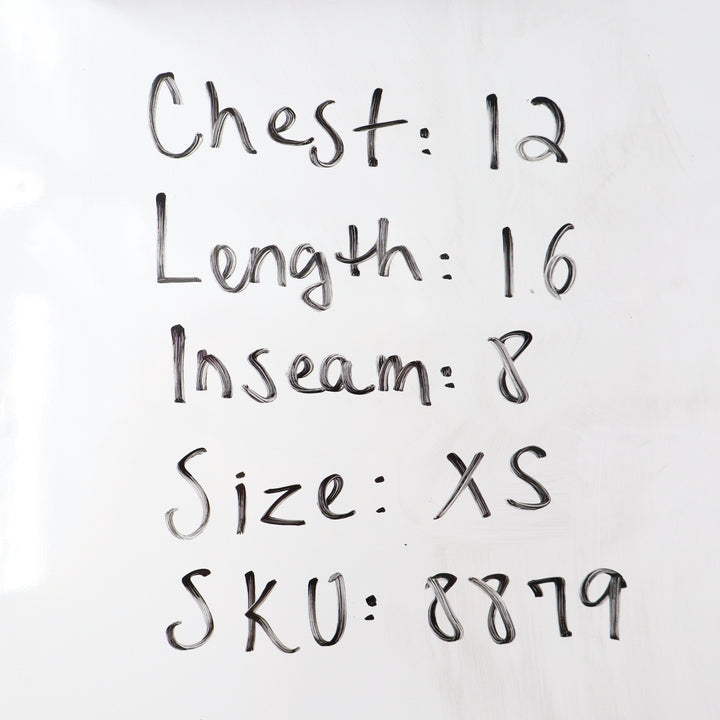 Chest: 12
Length: 16
Inseam: 8
Size: XS
SKU: 8879